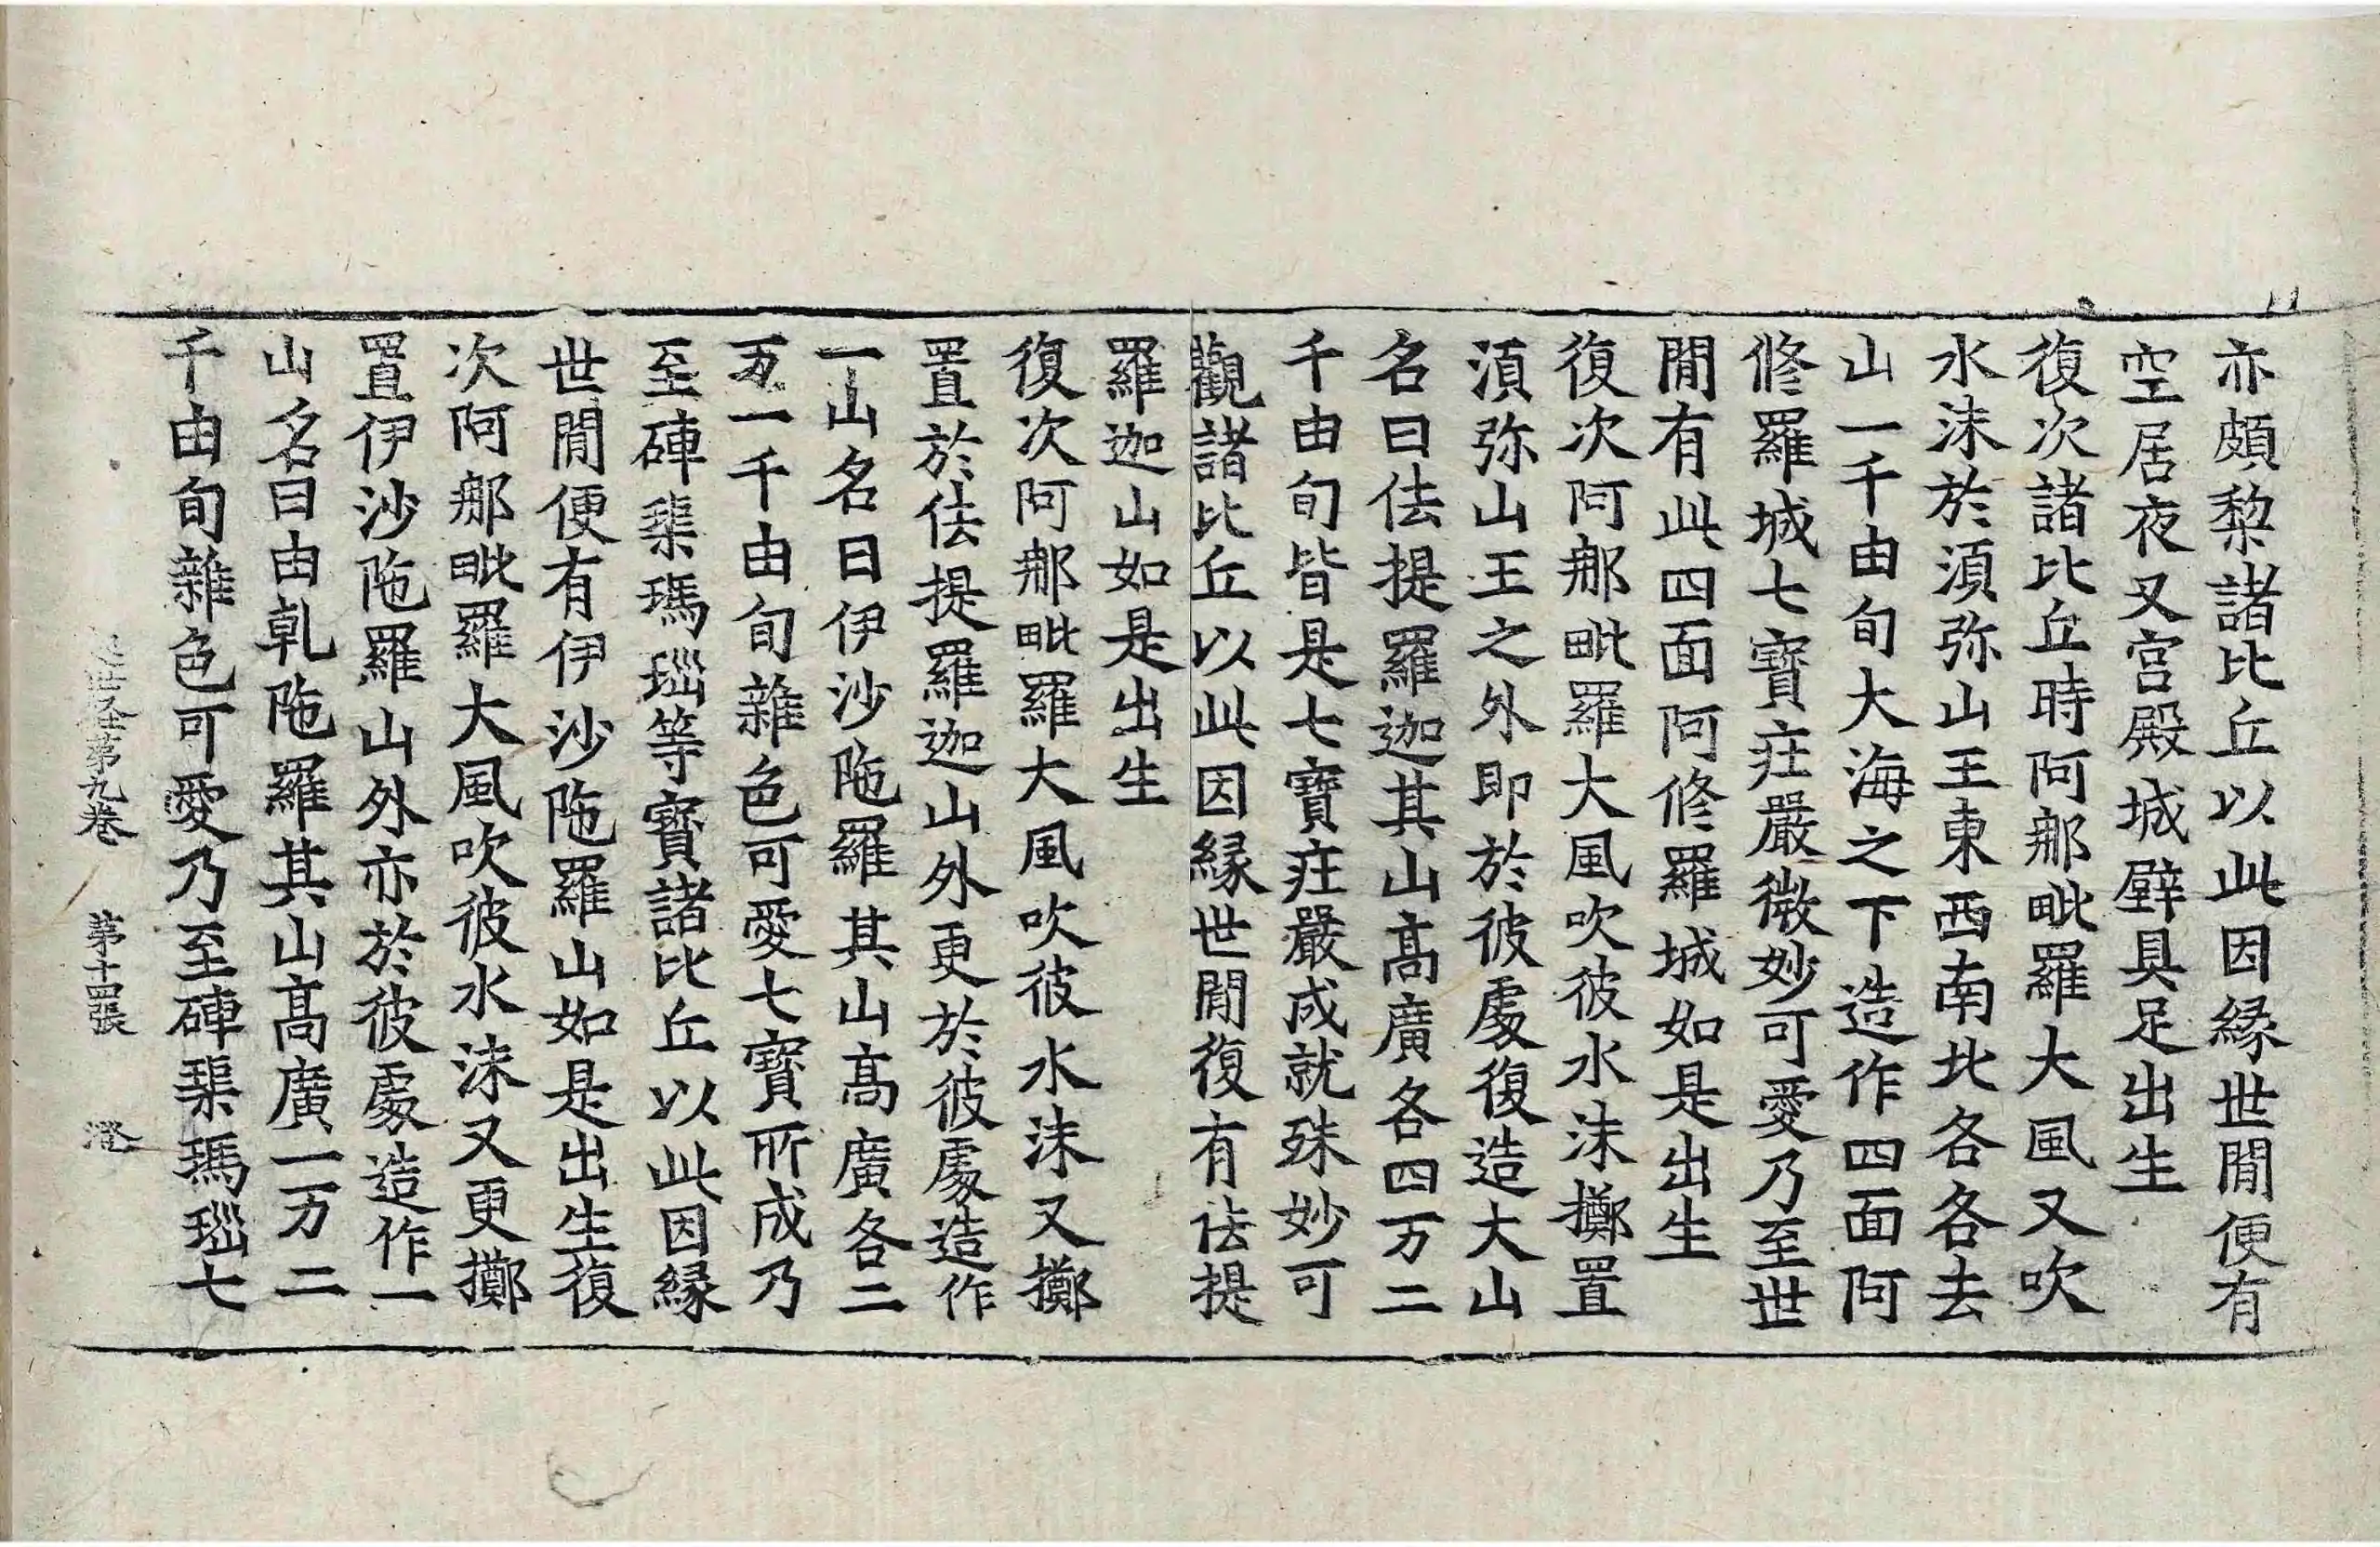 亦頗黎諸比丘以此因緣世閒便有
空居夜叉宮殿城壁具足出生
復次諸比丘時阿那毗羅大風又吹
水沫於湏弥山王東西南北各各去
山一千由旬大海之下造作四面阿
修羅城七寶莊嚴微妙可愛乃至世
閒有此四面阿修羅城如是出生
復次阿那毗羅大風吹彼水沫擲置
湏弥山王之外即於彼處復造大山
名曰佉提羅迦其山高廣各四万二
千由旬皆是七寶莊嚴成就殊妙可
觀諸比丘以此因緣世閒復有佉提
羅迦山如是出生
復次阿那毗羅大風吹彼水沫又擲
置於佉提羅迦山外更於彼處造作
一山名曰伊沙陁羅其山高廣各二
万一千由旬雜色可愛七寶所成乃
至硨磲瑪瑙等寶諸比丘以此因緣
世閒便有伊沙陁羅山如是出生復
次阿那毗羅大風吹彼水沫又更擲
置伊沙陁羅山外亦於彼處造作一
山名曰由乹陁羅其山高廣一万二
千由旬雜色可愛乃至硨磲瑪瑙七
世経第九卷 第十四張